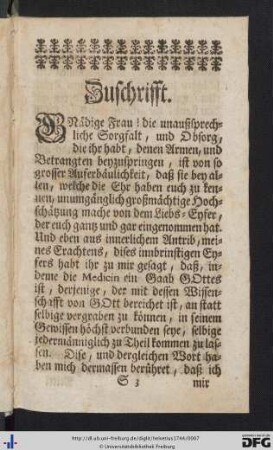 Zuschrifft.
GNädige Frau! die unaussprech-
liche Sorgfalt, und Obsorg,
die ihr habt, denen Armen, und
Betrangten beyzuspringen, ist von so
grosser Auferbäulichkeit, daß sie bey al-
len, welche die Ehr haben euch zu ken-
nen, unumgänglich großmächtige Hoch-
schätzung mache von dem Liebs-Eyfer,
der euch gantz und gar eingenommen hat.
Und eben aus innerlichem Antrib, mei-
nes Erachtens, dises innbrinstigen Ey-
fers habt ihr zu mir gesagt, daß, in-
deme die Medicin ein Gaab GOttes
ist, derjenige, der mit dessen Wissen-
schafft von GOtt bereichet ist, an statt
selbige vergraben zu können, in seinem
Gewissen höchst verbunden seye, selbige
jedermänniglich zu Theil kommen zu las-
sen. Dise, und dergleichen Wort ha-
ben mich dermassen berühret, daß ich
mir
http://dl.ub.uni-freiburg.de/diglit/helvetius1744/0007
© Universitätsbibliothek Freiburg
gefördert durch die
DFG